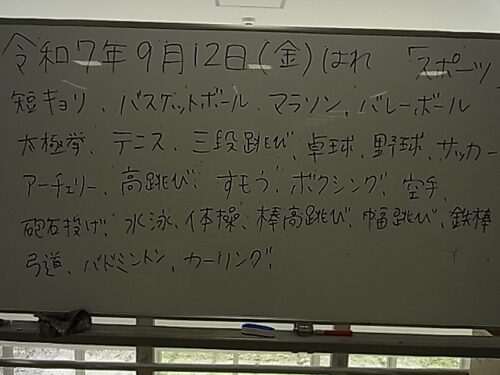 令和7年9月12日(金)はれ 「スポーツ
短キョリ、バスケットボール、マラソン、バレーボール
太極拳、テニス、三段跳び、卓球、野球、サッカー
アーチェリー、高跳び、すもう、ボクシング、空手、
砲丸投げ、水泳、体操、棒高跳び、幅跳び、鉄棒
弓道、バドミントン、カーリング、